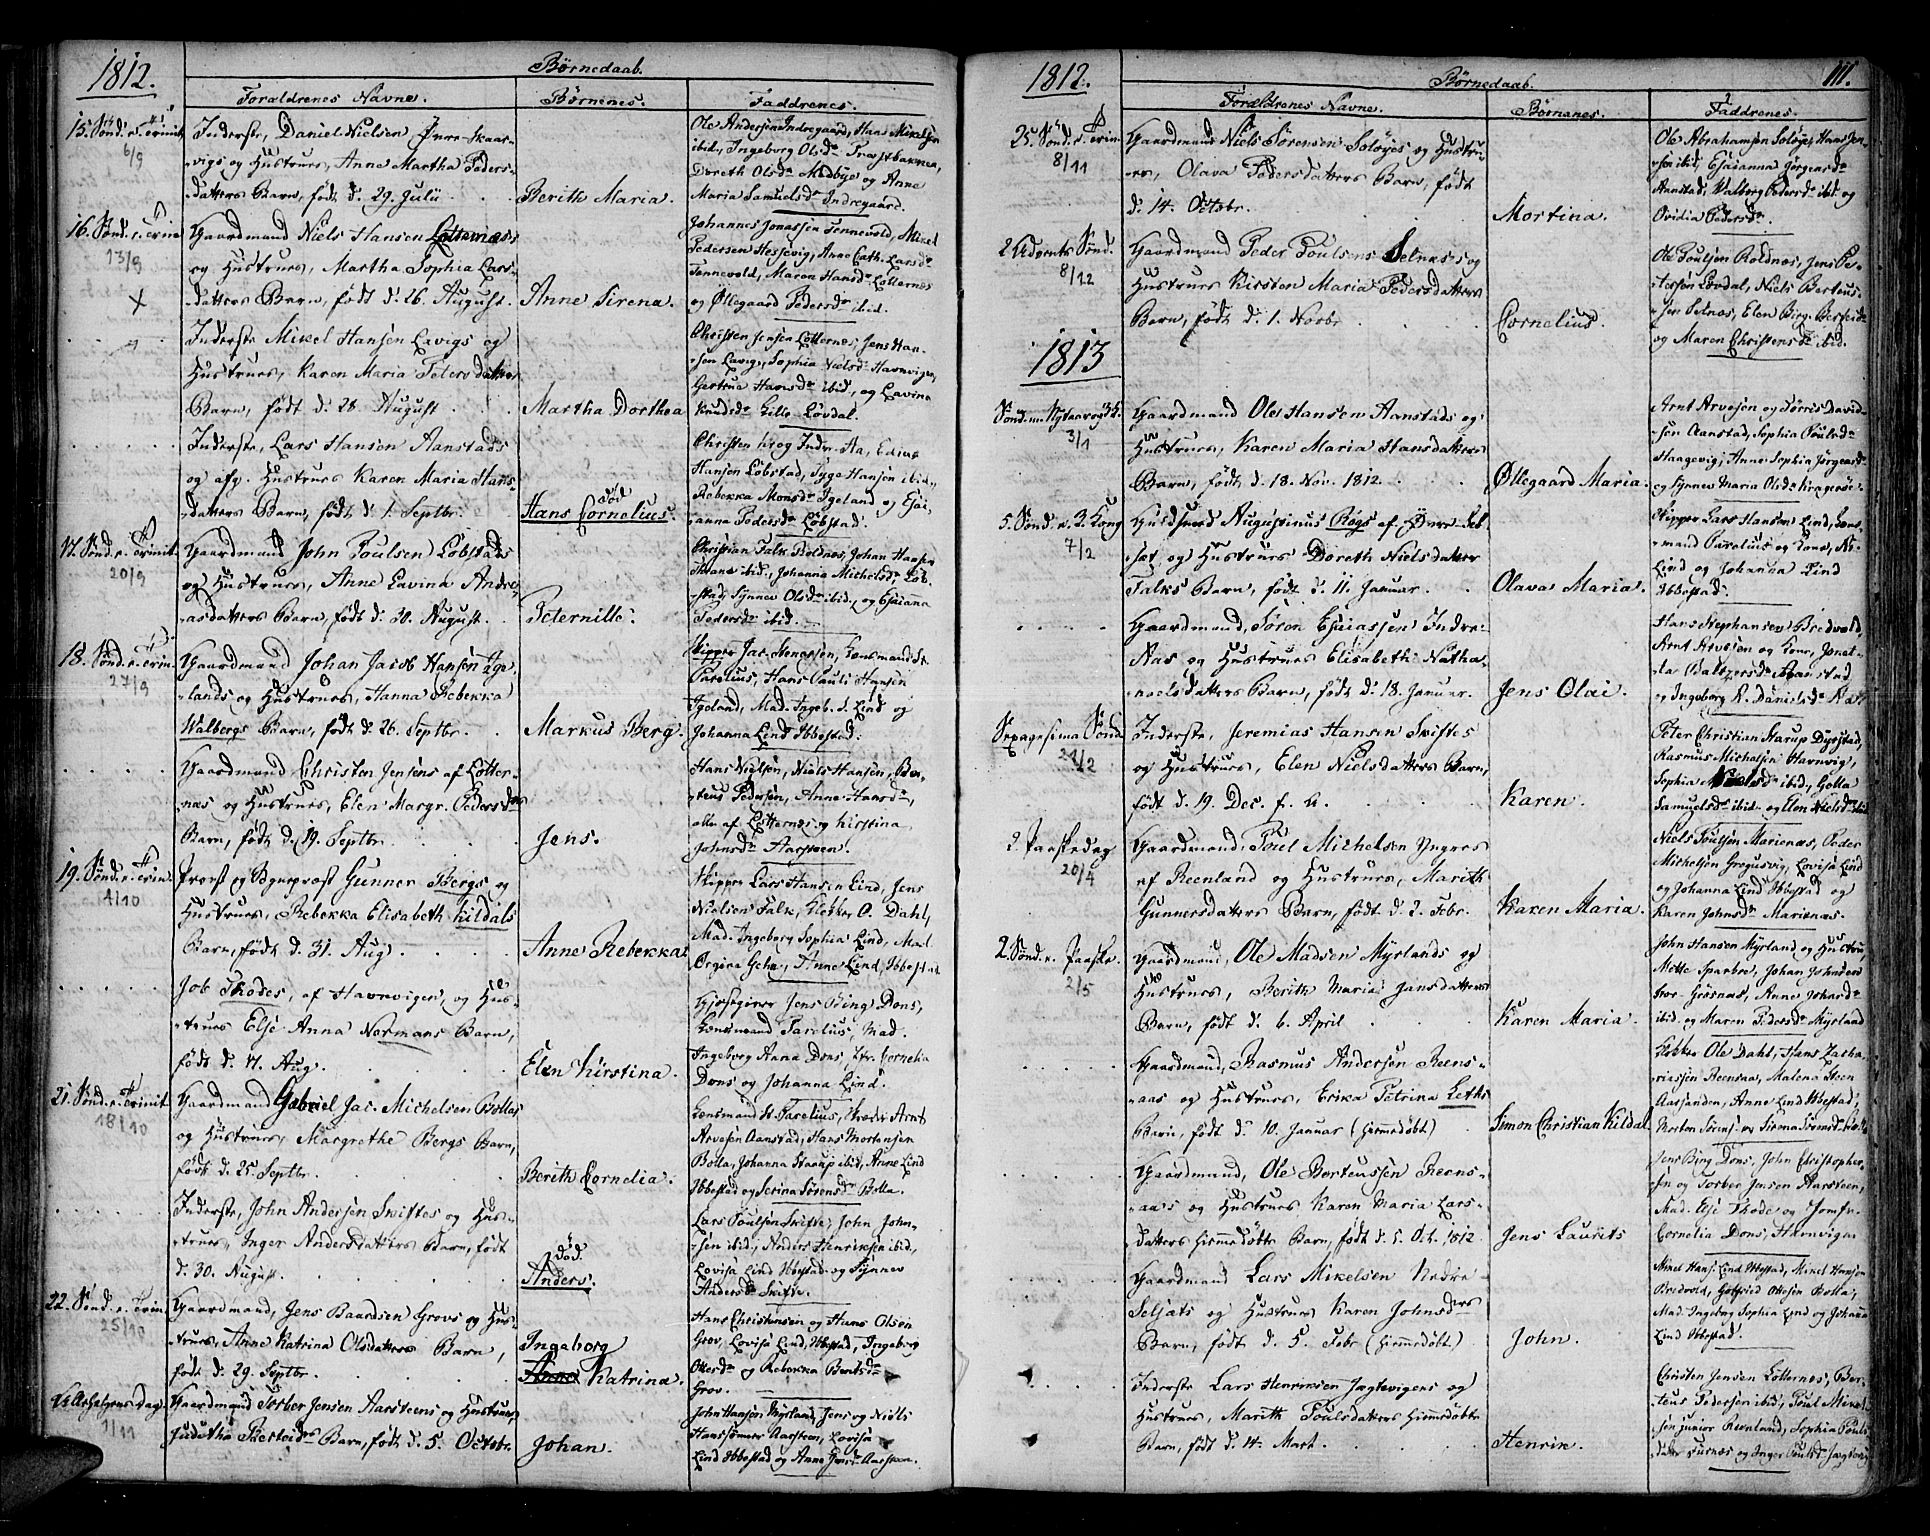 1812.
Børnedaab.
Forældrenes Navne. Børnenes. Faddrenes.
15. Sønd. e. Trinit.
6/9
Inderste, Daniel Nielsen Øvre-Skaar-
-vigs og Hustrues, Anne Martha Peders-
datters Barn, født d. 29. Julii
Berith Maria.
Ole Andersen Indregaard, Hans Mikelsen
ibid., Ingeborg Olsdr Præstbakken,
Doreth Olsdr Medbye og Anne
Maria Samuelsdr Indregaard.
16. Sønd. e. Trinit.
13/9
Gaardmand Niels Hansen Lotternæs
og Hustrues, Martha Sophia Lars-
datters Barn, født d. 26. August.
Anne Sirena.
Johannes Jonassen Tennevold, Mikel
Pedersen Hessevig, Anne Cath. Larsdr
Tennevold, Maren Hansdr Lotternes
og Øllegaard Pedersdr ibid.
Inderste Mikel Hansen Lavigs og
Hustrues, Karen Maria Petersdatter
Barn, født d. 28. August.
Martha Dorthea
Christen Jensen Lotternes, Jens Han-
-sen Lavig, Sophia Nielsdr Havnvigen,
Gertrue Hansdr ibid., og Lavina
Knudsdr Lille Løvdal.
Inderste, Lars Hansen Aanstads
og afg. Hustrues Karen Maria Hans-
datters Barn, født d. 1. Septbr.
død
Hans Cornelius.
Christen Krog Indre-Aa, Edias
Hansen Løbstad, Tyge Hansen ibid.,
Rebekka Monsdr Igeland og Esai-
anna Pedersdr Løbstad.
17. Sønd. e. Trinit.
20/9
Gaardmand John Poulsen Løbstads
og Hustrues, Anne Lavina Andre-
asdatters Barn, født d. 30. August.
Peternille.
Christian Falk Roldnes, Johan Haagen
ibid., Johanna Michelsdr Løb-
stad, Synnev Olsdr ibid., og Esaianna
Pedersdr ibid.
18. Sønd. e. Trin.
27/9
Gaardmand Johan Jacob Hansen Ige-
lands og Hustrues, Hanna Rebekka
Walbergs Barn, født d. 26. Septbr.
Markus Berg.
Skipper Jac. Stenersen, Lensmand
Parelius, Hans Pauli Hansen
Igeland, Mad. Ingeb. S. Lind og
Johanna Lind Ibbestad.
Gaardmand Christen Jensens af Lotter-
næs og Hustrues, Elen Margr. Pedersdrs
Barn, født d. 19. Septbr.
Jens.
Hans Nielsen, Niels Hansen, Ber-
teus Pedersen, Anne Hansdr,
alle af Lotternæs og Kirstina
Johnsdr Aarsteen.
19. Sønd. e. Trin.
4/10
Provst og Sognepræst Gunner Bergs og
Hustrues, Rebekka Elisabeth Kildals
Barn, født d. 31. Aug.
Anne Rebekka
Skipper Lars Hansen Lind, Jens
Nielsen Falk, Klokker O. Dahl,
Mad. Ingeborg Sophia Lind, Mad.
Anne Lind, Ibbestad
Job Thodes, af Havnvigen, og Hus-
-trues Elje Anna Normans Barn,
født d. 17. Aug.
Elen Kirstina.
Gjæstgiver Jens Bing Dons,
Lensmand Parelius, Mad.
Ingeborg Anna Dons, Jfr. Cornelia
Dons og Johanna Lind.
21. Sønd. e. Trinit.
18/10
Gaardmand Gabriel Jac. Michelsen Bollas
og Hustrues, Margrethe Bergs Barn,
født d. 25. Septbr.
Berith Cornelia.
Lensmand H. Parelius, Arnt
Arvesen Aanstad, Hans Mortensen
Bolla, Johanna Harup ibid., Anne Lind
Ibbestad og Serina Sørensdr Bolla.
Inderste, John Andersen Skiftes og Hus-
-trues, Inger Andersdatters Barn, født
d. 30. August.
død.
Anders.
Lars Poulsen Skifte, John John-
-sen ibid., Anders Henriksen ibid.,
Lovisa Lind Ibbestad og Synnev
Andersdr Skifte.
22. Sønd. e. Trin.
25/10
Gaardmand, Jens Baardsen Grovs og Hus-
-trues, Anne Katrina Olsdatters Barn,
født d. 29. Septbr.
Ingeborg
Anne Katrina.
Hans Christensen og Hans Olsen
Grov, Lovisa Lind Ibbestad, Ingeborg
Ottesdr og Rebekka Bentsdr
Grov.
Alehelgens Dag.
1/11
Gaardmand Torber Jensen Aarsteens og Hustrues
Juditha Barn, født d. 5. Octobr.
Johan.
John Hansen Myrland, Jens og Niels
Hanssønner Aarsteen, Lovisa
Lind Ibbestad og Anne Jensdr Aarsteen.
1812.
Børnedaab.
111.
Forældrenes Navne. Børnenes. Faddrenes.
25. Sønd. e. Trin.
8/11
Gaardmand Niels Sørensen Soløyes og Hustru-
-es, Olava Pedersdatters Barn, født
d. 14. Octobr.
Mortina.
Ole Abrahamsen Soløye, Hans Jen-
sen ibid., Esaianna Jørgensdr
Aanstad, Walborg Pedersdr ibid. og
Ovidia Pedersdr.
2. Advents Sønd.
8/12
Gaardmand Peder Poulsens Selnæs og
Hustrues Kirsten Maria Pedersdatters
Barn, født d. 1. Novbr.
Cornelius.
Ole Poulsen Roldnæs, Jens Pe-
tersen Løvdal, Niels Berteus-
sen Selnæs, Elen Birg.
og Maren Christensdr ibid.
1813
Sønd. m. Nytaar og 3 K.
3/1
Gaardmand Ole Hansen Aanstads og
Hustrues, Karen Maria Hansdatters
Barn, født d. 18. Nov. 1812.
Øllegaard Maria.
Arnt Arvesen og Tørris David-
sen Aanstad, Sophia Poulsdr
Haagevig, Anne Sophia Jørgensdr
og Synnev Maria Olsdr
5. Sønd. e. 3. Kong.
7/2
Huusmand Augustinus Røgs af Øvre-Sel-
-set og Hustrues Doreth Nielsdatter
Falks Barn, født d. 11. Januar.
Olava Maria.
Skipper Lars Hansen Lind, Lens-
mand Parelius og Kone,
Lind og Johanna Lind
Ibbestad.
Gaardmand, Søren Esaiassen Indre-
Aas og Hustrues Elisabeth Natha-
naelsdatters Barn, født d. 18. Januar.
Jens Olai.
Hans Stephansen Bredvold,
Arnt Arvesen og Kone,
Aanstad
og Ingeborg K. Danielsdr
Sexagesima Sønd.
21/2
Inderste, Jeremias Hansen Skiftes
og Hustrues, Elen Nielsdatters Barn,
født d. 19. Dec. f. A.
Karen.
Peter Christian Harup Dyrstad,
Rasmus Michelsen Havnvig,
Sophia Nielsdr ibid., Golla
Samuelsdr ibid. og Elen Nielsdr ibid
2. Paaskedag
20/4
Gaardmand, Poul Michelsen Yngres
af Reenland og Hustrues, Marith
Gunnersdatters Barn, født d. 2. Febr.
Karen Maria.
Niels Poulsen Marienæs, Peder
Michelsen Gregusvig, Lovisa Lind
og Johanna Lind Ibbestad og
Karen Johnsdr Marienæs.
2. Sønd. e. Paaske.
2/5
Gaardmand, Ole Madsen Myrlands og
Hustrues, Berith Maria Jansdatters
Barn, født d. 6. April
Karen Maria.
John Hansen Myrland og Hustru,
Mette Sparboe, Johan Johnsen
Grøsnæs, Anne Johnsdr
ibid. og Maren Pedersdr Myrland
Gaardmand, Rasmus Andersen Reens-
-aas og Hustrues, Erika Petrina Leths
Barn, født d. 10. Januar (hiemmedøbt)
Simon Christian Kildal
Klokker Ole Dahl, Hans Zacha-
riassen Reensaa, Malena Steen
Aarsanden, Anne Lind Ibbestad,
Morten Sørens. og Sirena Sørensdr
Gaardmand, Ole Berteussen Reens-
-aas og Hustrues Karen Maria Lars-
datters hiemmedøbte Barn, født d. 5. Oct. 1812
Jens Laurits
Jens Bing Dons, John Christopher-
sen og Torber Jensen Aarsteen,
Mad. Elje Thode og Jomfr.
Cornelia Dons, Havnvigen
Gaardmand Lars Mikelsen Nedre-
Selsæts og Hustrues Karen Johnsdrs
Barn, født d. 5. Febr. (hiemmedøbt)
John.
Mikel Hans. Lind Ibbestad, Mikel Hansen
Bredvold, Gotfried Ottesen Bolla,
Mad. Ingeborg Sophia Lind og Johanna
Lind Ibbestad.
Inderste Lars Henriksen Jægtevigens og
Hustrues, Marith Poulsdatters hiemmedøbte
Barn, født d. 14. Mart.
Henrik.
Christen Jensen Lotternes, Ber-
teus Pedersen ibid., Poul Mikel-
sen junior Reenland, Sophia Pouls-
datter Furnæs og Inger Poulsdr Jægtevig